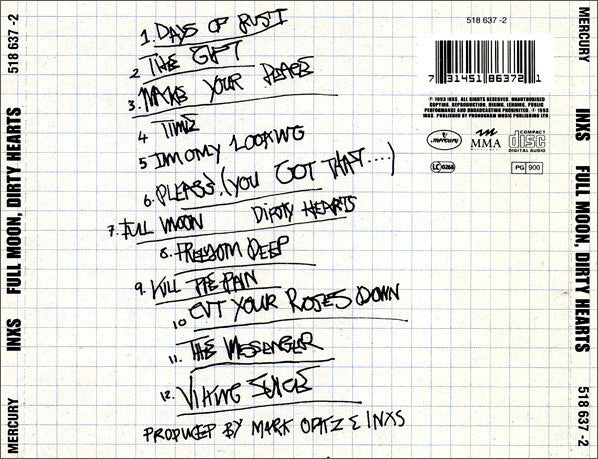 MERCURY INXS FULL MOON, DIRTY HEARTS 518 637 -2
1. DAYS OF RUST
2 THE GIFT
3. MAKE YOUR PEACE
4 TIME
5 IM ONLY LOOKING
6. PLEASE, (YOU GOT THAT....)
7. FULL MOON DIRTY HEARTS
8. FREEDOM DEEP
9. KILL THE PAIN
10 CUT YOUR ROSES DOWN
11. THE MESSENGER
12. VIKING JUICE
PRODUCED BY MARK OPITZ & INXS
518 637 -2
7 31451 86372 1
℗ 1993 INXS. ALL RIGHTS RESERVED. UNAUTHORISED
COPYING, REPRODUCTION, HIRING, LENDING, PUBLIC
PERFORMANCE AND BROADCASTING PROHIBITED. © 1993
INXS. PUBLISHED BY PHONOGRAM MUSIC PUBLISHING LTD.
Mercury
MMA
COMPACT
disc
DIGITAL AUDIO
LC 0268
PG 900
MERCURY INXS FULL MOON, DIRTY HEARTS 518 637 -2